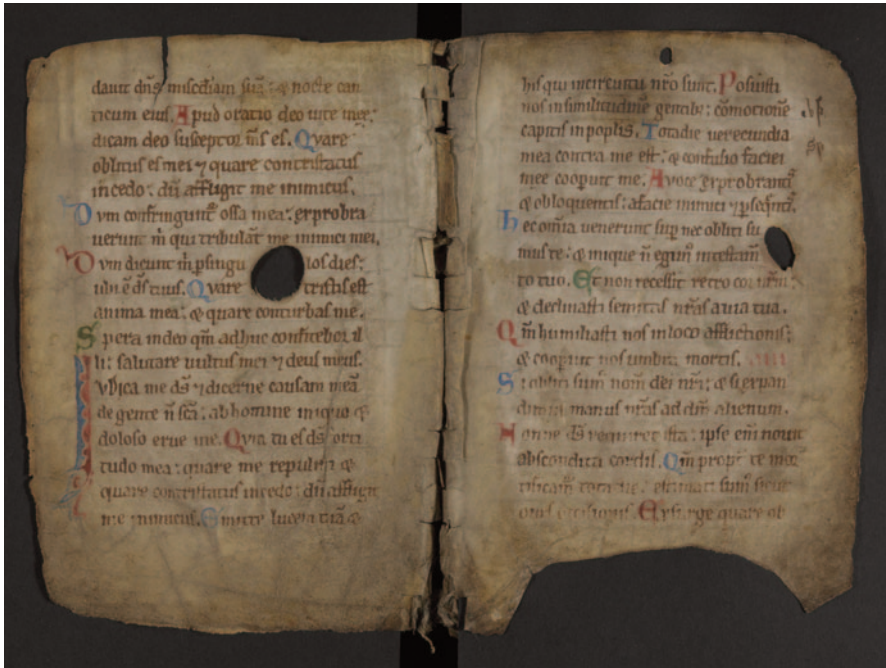 dauit dn̄s misc̄diam suā: ⁊ nocte can
ticum eius. Apud me oratio deo uite mee:
dicam deo susceptor m̄s es. Quare
oblitus es mei ⁊ quare contristatus
incedo: dū affligit me inimicus.
Dum confringunt᷑ ossa mea: exprobra
uerunt m̄ qui tribulāt me inimici mei.
Dum dicunt m̄ p̄ singu los dies:
ubi ē ds̄ tuus. Quare tristis est
anima mea: ⁊ quare conturbas me.
Spera in deo qm̄ adhuc confitebor il
li: salutare uultus mei ⁊ deus meus.
Iudica me ds̄ ⁊ discerne causam meā
de gente n̄ sc̄a: ab homine iniquo ⁊
doloso erue me. Quia tu es ds̄ forti
tudo mea: quare me repulisti ⁊
quare contristatus incedo: dū affligit
me inimicus. Emitte lucem tuā ⁊
his qui in circuitu nr̄o sunt. Posuisti
nos in similitudinē gentib;: cōmotionē
capitis in poplīs. Tota die uerecundia
mea contra me est: ⁊ confusio faciei
mee cooperuit me. A uoce exprobrantis
⁊ obloquentis: a facie inimici ⁊ p̄seq̄ntis.
Hec om̄ia uenerunt sup̄ nos nec obliti su
mus te: ⁊ inique n̄ egim᷒ in testam̄
to tuo. Et non recessit retro cor nr̄m:
⁊ declinasti semitas nr̄as a uia tua.
Qm̄ humiliasti nos in loco afflictionis:
⁊ cooperuit nos umbra mortis.
Si obliti sum᷒ nom̄ dei nr̄i: ⁊ si expan
dimus manus nr̄as ad dm̄ alienum.
Nonne ds̄ requiret ista: ipse eni̅ nouit
abscondita cordis. Qm̄ propt̄ te mor
tificam᷒ tota die: estimati sum᷒ sicut
oues occisionis. Exsurge quare ob